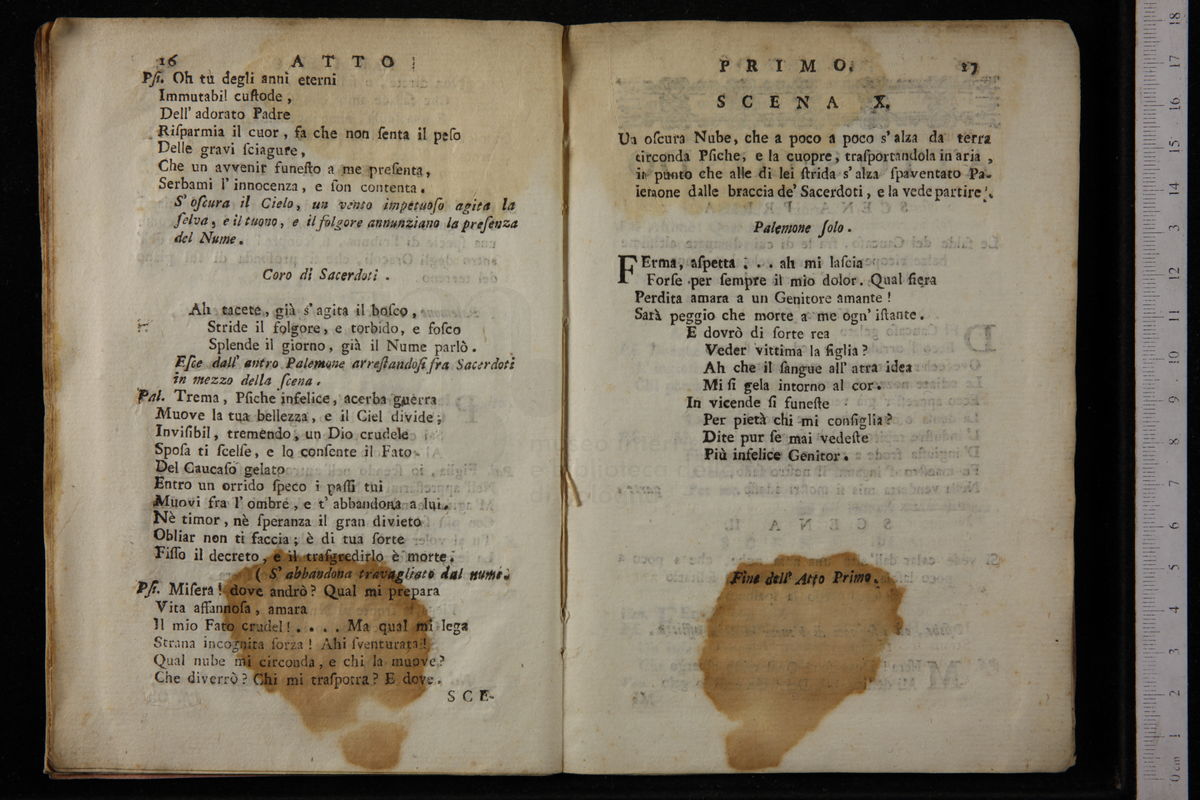 16 ATTO
Psi. Oh tù degli anni eterni
Immutabil custode,
Dell' adorato Padre
Risparmia il cuor, fa che non senta il peso
Delle gravi sciagure,
Che un avvenir funesto a me presenta,
Serbami l' innocenza, e son contenta.
S' oscura il Cielo, un vento impetuoso agita la
selva, e il tuono, e il folgore annunziano la presenza
del Nume.
Coro di Sacerdoti.
Ah tacete, già s' agita il bosco,
Stride il folgore, e torbido, e fosco
Splende il giorno, già il Nume parlò.
Esce dall' antro Palemone arrestandosi fra Sacerdoti
in mezzo della scena.
Pal. Trema, Psiche infelice, acerba guerra
Muove la tua bellezza, e il Ciel divide;
Invisibil, tremendo, un Dio crudele
Sposa ti scelse, e lo consente il Fato
Del Caucaso gelato
Entro un orrido speco i passi tui
Muovi fra l' ombre, e t' abbandona a lui.
Nè timor, nè speranza il gran divieto
Obliar non ti faccia; è di tua sorte
Fisso il decreto, e il trasgredirlo è morte.
( S' abbandona travagliato dal nume.
Psi. Misera! dove andrò? Qual mi prepara
Vita affannosa, amara
Il mio Fato crudel! . . . . Ma qual mi lega
Strana incognita forza! Ahi sventurata!
Qual nube mi circonda, e chi la muove?
Che diverrò? Chi mi traspotra? E dove.
SCE-
PRIMO. 17
SCENA X.
Un oscura Nube, che a poco a poco s' alza da terra
circonda Psiche, e la cuopre, trasportandola in aria,
in punto che alle di lei strida s' alza spaventato Pa-
lemone dalle braccia de' Sacerdoti, e la vede partire.
Palemone solo.
FErma, aspetta . . . ah mi lascia
Forse per sempre il mio dolor. Qual fiera
Perdita amara a un Genitore amante!
Sarà peggio che morte a me ogn' istante.
E dovrò di sorte rea
Veder vittima la figlia?
Ah che il sangue all' atra idea
Mi si gela intorno al cor.
In vicende sì funeste
Per pietà chi mi consiglia?
Dite pur se mai vedeste
Più infelice Genitor.
Fine dell' Atto Primo.